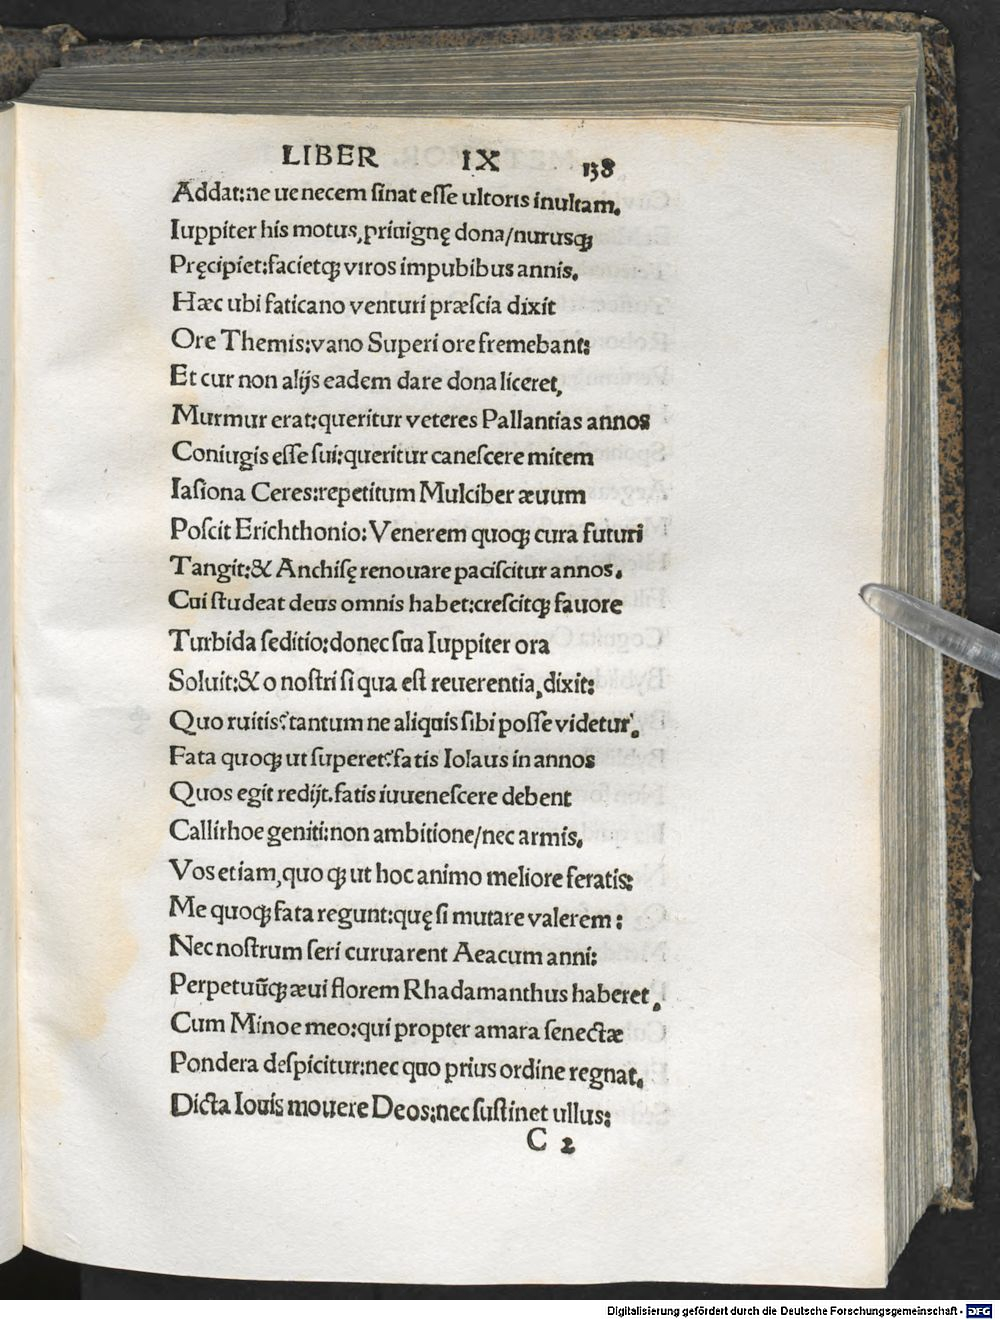 LIBER IX 138
Addat:ne ue necem ſinat eſſe ultoris inultam.
Iuppiter his motus,priuignę dona/nurusqꝫ
Pręcipiet:facietqꝫ viros impubibus annis.
Hæc ubi faticano venturi præſcia dixit
Ore Themis:vano Superi ore fremebant:
Et cur non alijs eadem dare dona liceret,
Murmur erat:queritur veteres Pallantias annos
Coniugis eſſe ſui:queritur caneſcere mitem
Iaſiona Ceres:repetitum Mulciber æuum
Poſcit Erichthonio:Venerem quoqꝫ cura futuri
Tangit:& Anchiſę renouare paciſcitur annos.
Cui ſtudeat deus omnis habet:creſcitqꝫ fauore
Turbida ſeditio:donec ſua Iuppiter ora
Soluit:& o noſtri ſi qua eſt reuerentia,dixit:
Quo ruitis?tantum ne aliquis ſibi poſſe videtur.
Fata quoqꝫ ut ſuperet?fatis Iolaus in annos
Quos egit redijt.fatis iuueneſcere debent
Callirhoe geniti:non ambitione/nec armis.
Vos etiam,quo qꝫ ut hoc animo meliore feratis:
Me quoqꝫ fata regunt:quę ſi mutare valerem:
Nec noſtrum ſeri curuarent Aeacum anni:
Perpetuũqꝫ æui florem Rhadamanthus haberet.
Cum Minoe meo:qui propter amara ſenectæ
Pondera deſpicitur:nec quo prius ordine regnat.
Dicta Iouis mouere Deos:nec ſuſtinet ullus:
C 2
Digitalisierung gefördert durch die Deutsche Forschungsgemeinschaft - DFG